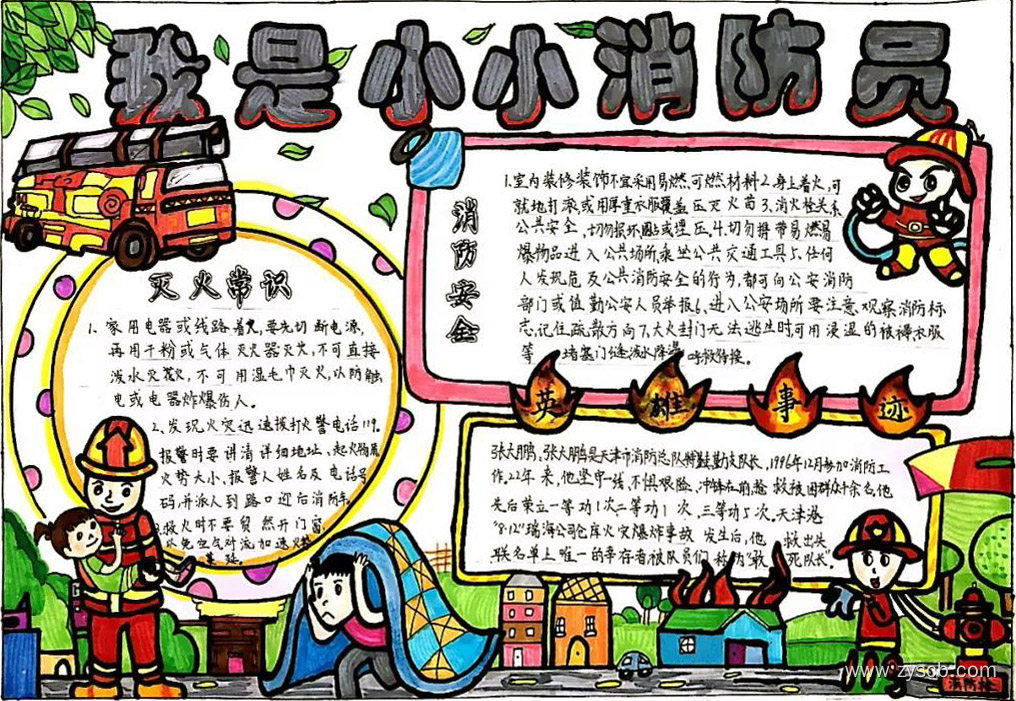 我是小小消防员
灭火常识
1、家用电器或线路着火,要先切断电源,
再用干粉或气体灭火器灭火,不可直接
泼水灭火,不可用湿毛巾灭火,以防触
电或电器炸爆伤人。
2、发现火灾迅速拨打火警电话119。
报警时要讲清详细地址、起火物质
火势大小,报警人姓名及电话号
码,并派人到路口迎后消防车
救火时不要贸然开门窗
以免空气对流加速火
消防安全
1.室内装修装饰不宜采用易燃,可燃材料2.身上着火,可
就地打滚,或用厚重衣服覆盖压灭火苗3.消火栓关系
公共安全,切勿损坏圈占或埋压,4.切勿携带易燃易
爆物品进入公共场所乘坐公共交通工具5.任何
人发现危及公共消防安全的行为,都可向公安消防
部门或值勤公安人员举报6.进入公安场所要注意观察消防标
志,记住疏散方向7.大火封门无法逃生时,可用浸湿的被褥衣服
等 堵塞门缝泼水降温 呼救待援。
英雄事迹
张大鹏,张大鹏是天津市消防总队特勤支队长,1996年12月参加消防工
作,22年来,他坚守一线,不惧艰险,冲锋在前,抢救被困群众千余名,他
先后荣立一等功1次二等功1次,三等功5次,天津港
“8·12”瑞海公司仓库火灾爆炸事故发生后,他救出失
联名单上唯一的幸存者被队员们称为“敢死队长”。
www.zyscb.com
消防栓